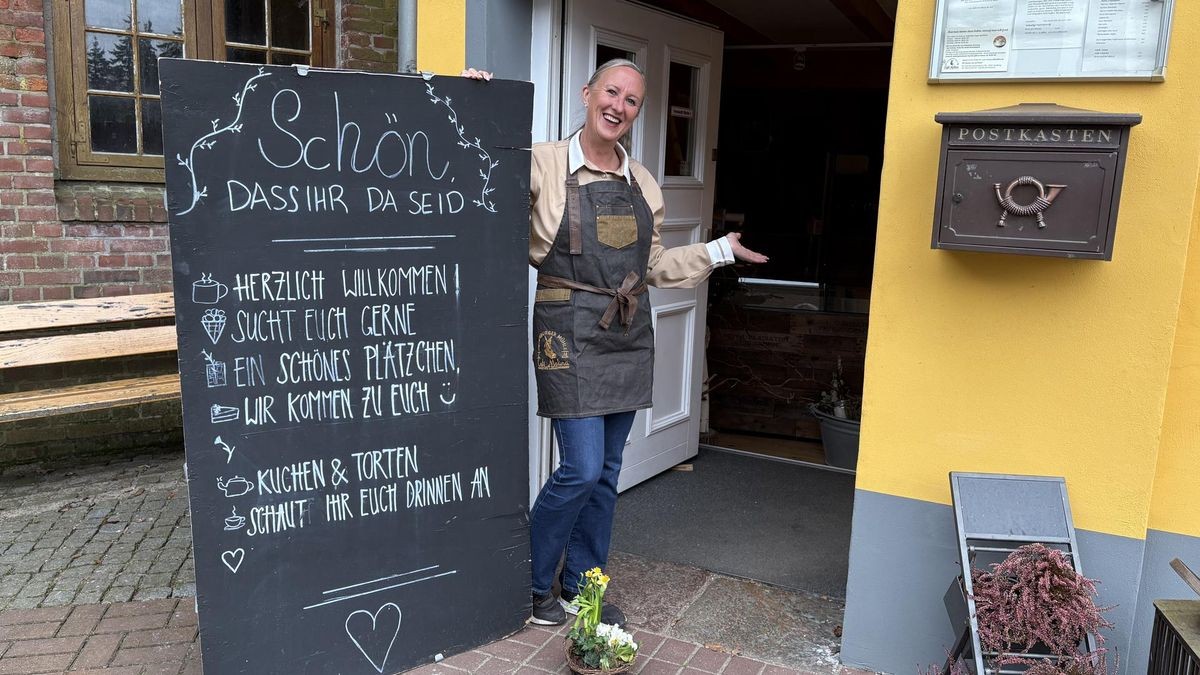 Schön,
DASS IHR DA SEID
HERZLICH WILLKOMMEN!
SUCHT EUCH GERNE
EIN SCHÖNES PLÄTZCHEN,
WIR KOMMEN ZU EUCH
KUCHEN & TORTEN
SCHAUT IHR EUCH DRINNEN AN
POSTKASTEN